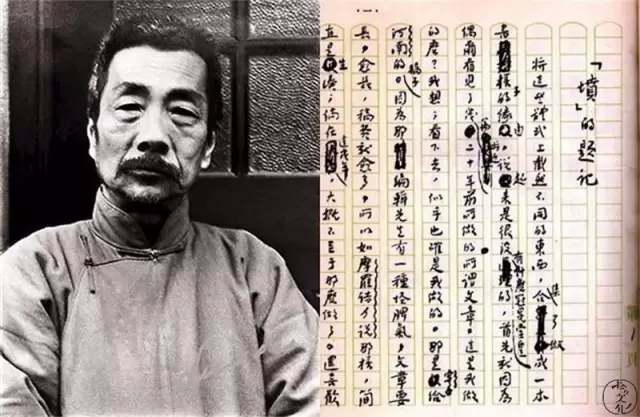 「墳」的題記
將這些體式上截然不同的東西,集合了做成一本
書樣子的緣由,說起來是很沒有什麼冠冕堂皇的,首先就因為
偶爾看見了幾篇將近二十年前所做的所謂文章。這是我做
的麼?我想;看下去,似乎也確是我做的。那是寄給
河南的稿子;因為那編輯先生有一種怪脾氣,文章要
長,愈長,稿費就愈多,所以如摩羅詩力說那樣,簡
直是生湊;倘在這幾年,大概不至于那麼做了。還喜歡